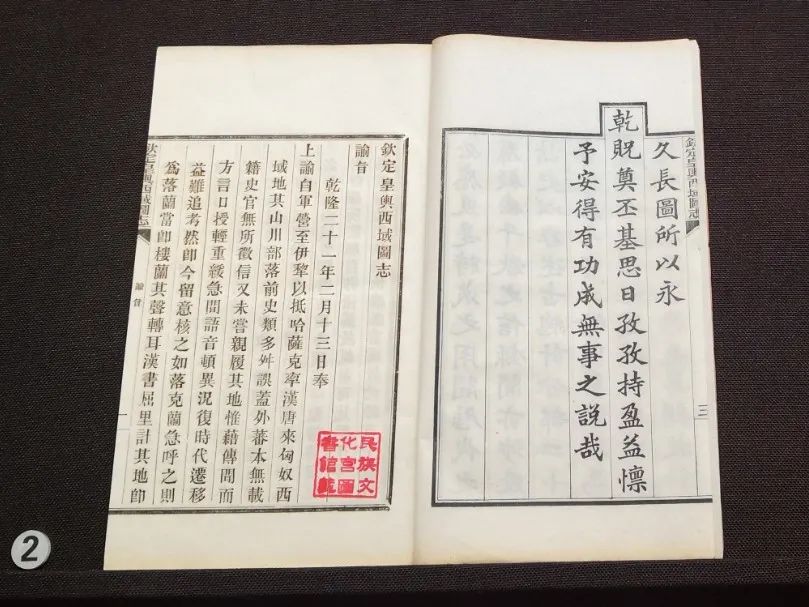 欽定皇輿西域圖志
三
久長圖所以永
乾貺奠丕基思日孜孜持盈益懍
予安得有功成無事之説哉
欽定皇輿西域圖志
諭旨
乾隆二十一年二月十三日奉
上諭自軍營至伊犂以抵哈薩克率漢唐來匈奴西
域地其山川部落前史類多舛誤葢外蕃本無載
籍史官無所徵信又未嘗親履其地惟藉傳聞而
方言口授輕重緩急間語音頓異況復時代遷移
益難追考然卽今留意核之如落克蘭急呼之則
爲落蘭當卽樓蘭其聲轉耳漢書屈里計其地卽
欽定皇輿西域圖志
諭旨
一
民族文
化宮圖
書館藏
2